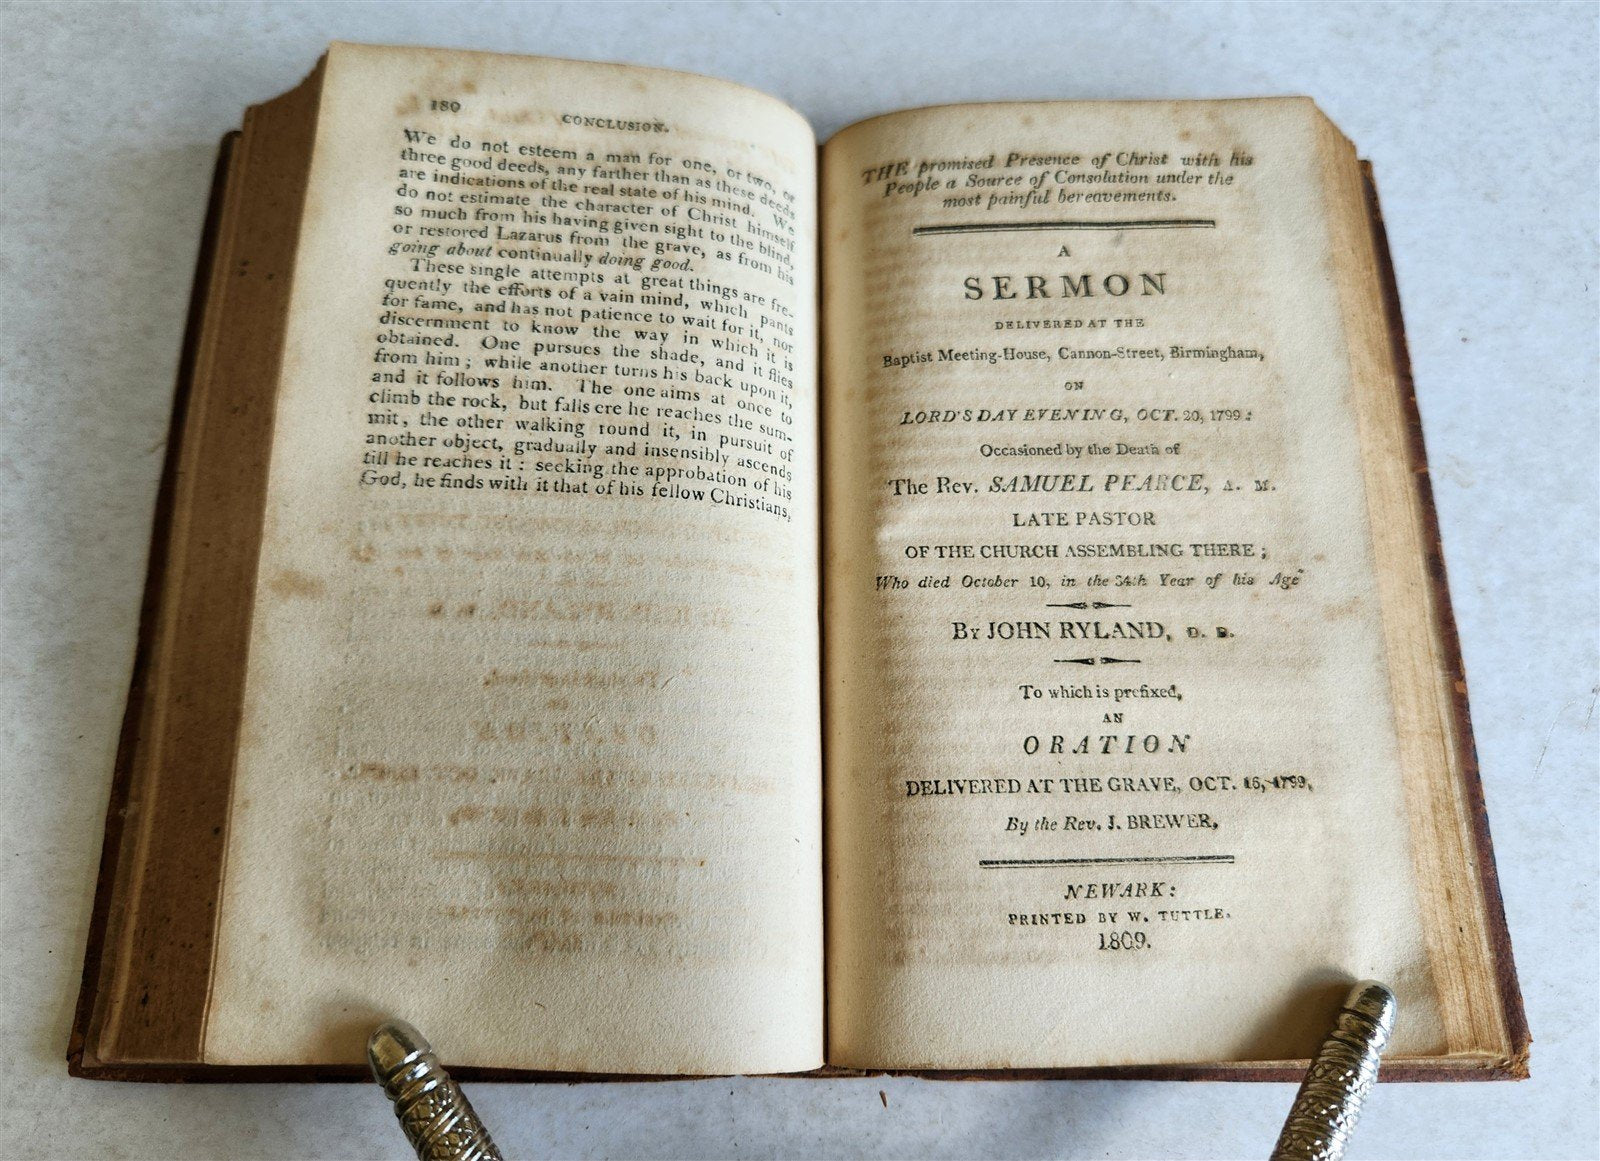 180
CONCLUSION.
We do not esteem a man for one, or two, or
three good deeds, any farther than as these deeds
are indications of the real state of his mind. We
do not estimate the character of Christ himself
so much from his having given sight to the blind,
or restored Lazarus from the grave, as from his
going about continually doing good.
These single attempts at great things are fre-
quently the efforts of a vain mind, which pants
for fame, and has not patience to wait for it, nor
discernment to know the way in which it is
obtained. One pursues the shade, and it flies
from him; while another turns his back upon it,
and it follows him. The one aims at once to
climb the rock, but falls ere he reaches the sum-
mit, the other walking round it, in pursuit of
another object, gradually and insensibly ascends
till he reaches it: seeking the approbation of his
God, he finds with it that of his fellow Christians,
THE promised Presence of Christ with his
People a Source of Consolation under the
most painful bereavements.
A
SERMON
DELIVERED AT THE
Baptist Meeting-House, Cannon-Street, Birmingham,
ON
LORD'S DAY EVENING, OCT. 20, 1799:
Occasioned by the Death of
The Rev. SAMUEL PEARCE, A. M.
LATE PASTOR
OF THE CHURCH ASSEMBLING THERE;
Who died October 10, in the 34th Year of his Age
By JOHN RYLAND, D. D.
To which is prefixed,
AN
ORATION
DELIVERED AT THE GRAVE, OCT. 16, 1799,
By the Rev. J. BREWER.
NEWARK:
PRINTED BY W. TUTTLE.
1809.